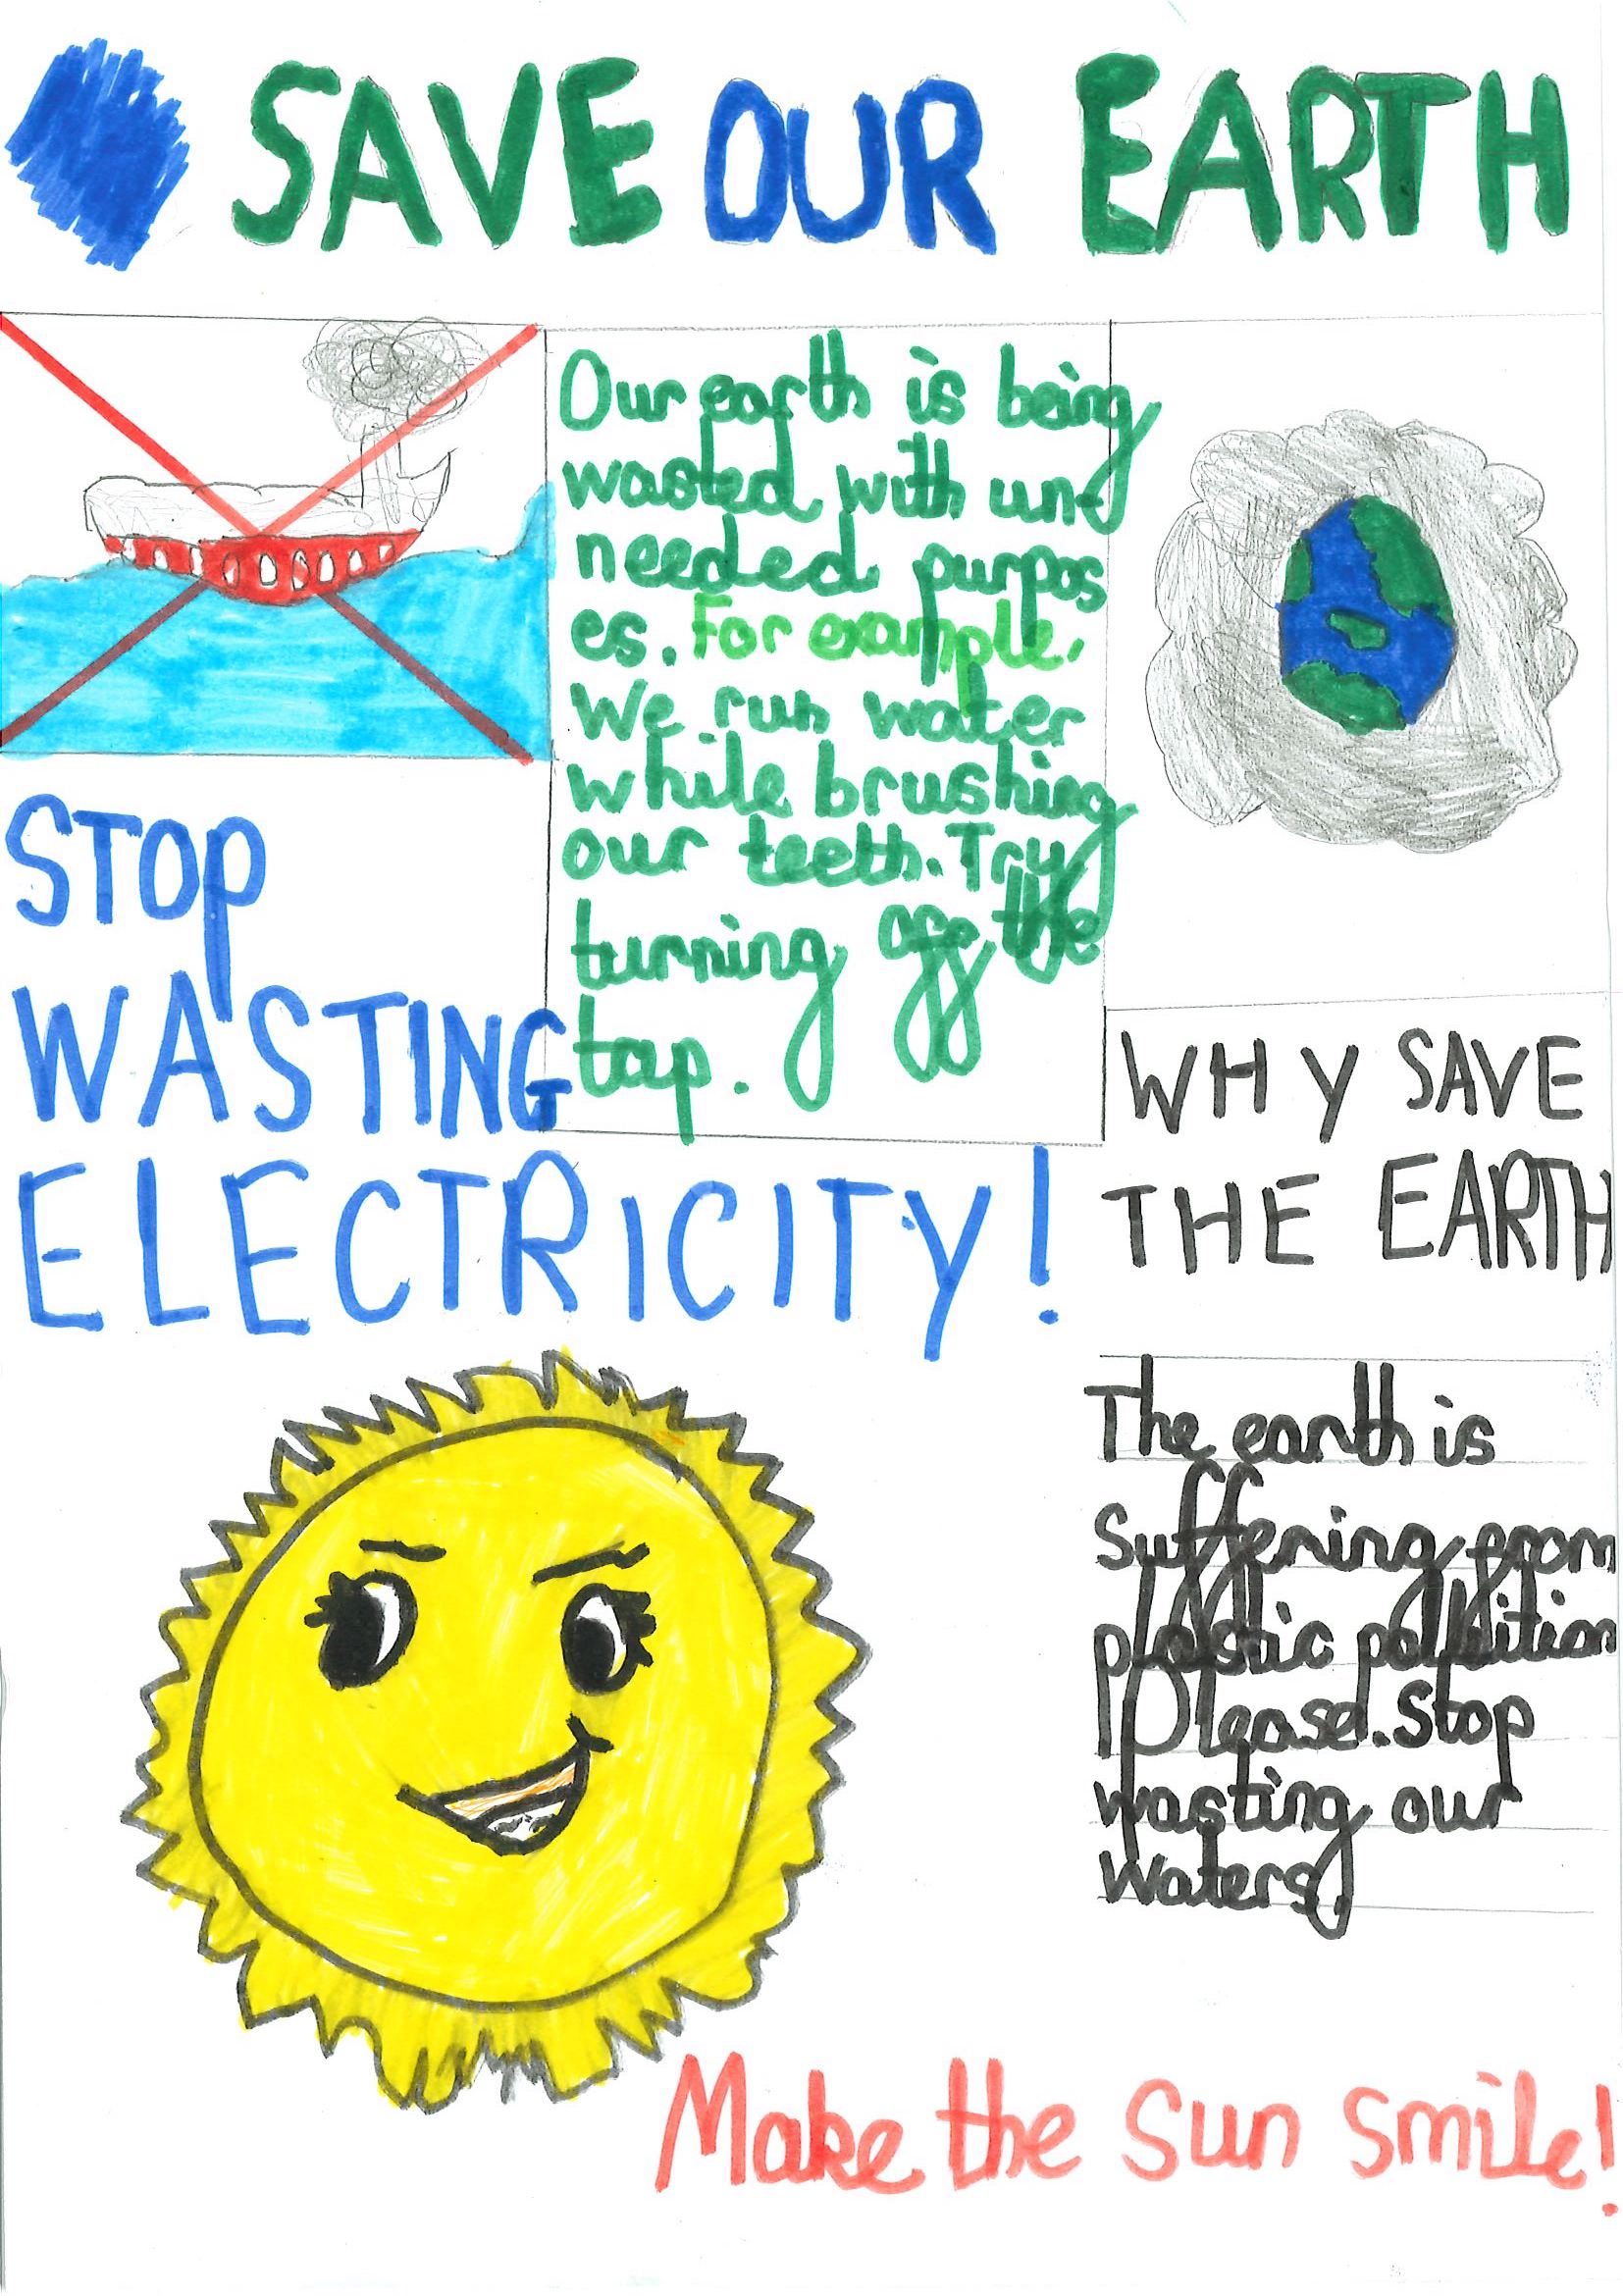 SAVE OUR EARTH
Our earth is being
wasted with un-
needed purpos
es. For example.
We run water
while brushing
our teeth. Try
turning off the
tap.
STOP
WASTING
ELECTRICITY!
WHY SAVE
THE EARTH
The earth is
Suffering from
plastic pollution
Please. Stop
wasting our
Waters.
Make the Sun Smile!